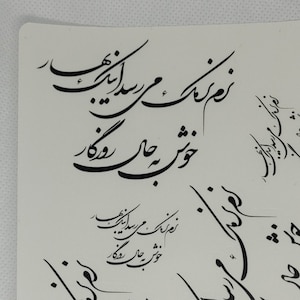 نرم نرمک می رسد اینک بهار
خوش به حال روزگار
نرم نرمک می رسد اینک بهار
خوش به حال روزگار
نرم نرمک
خوش
نرم نرمک